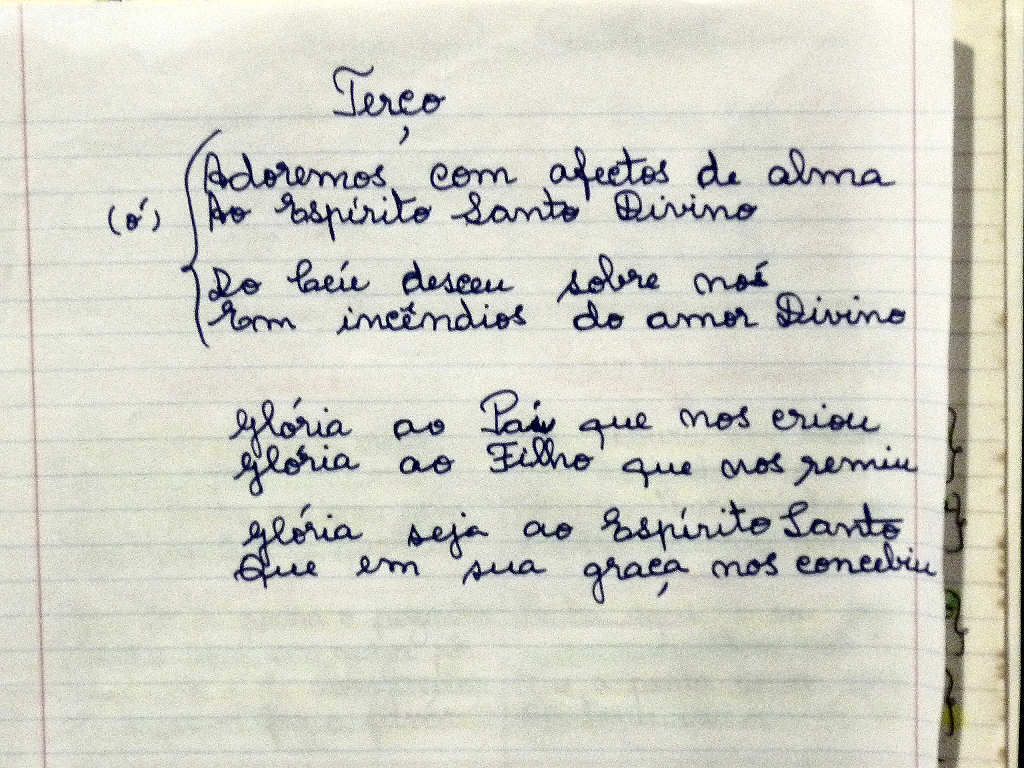 Terço
Adoremos com afectos de alma
(ó) Ao Espírito Santo Divino
Do Céu desceu sobre nós
Em incêndios do amor Divino
Glória ao Pai que nos criou
Glória ao Filho que nos remiu
Glória seja ao Espírito Santo
Que em sua graça nos concebiu